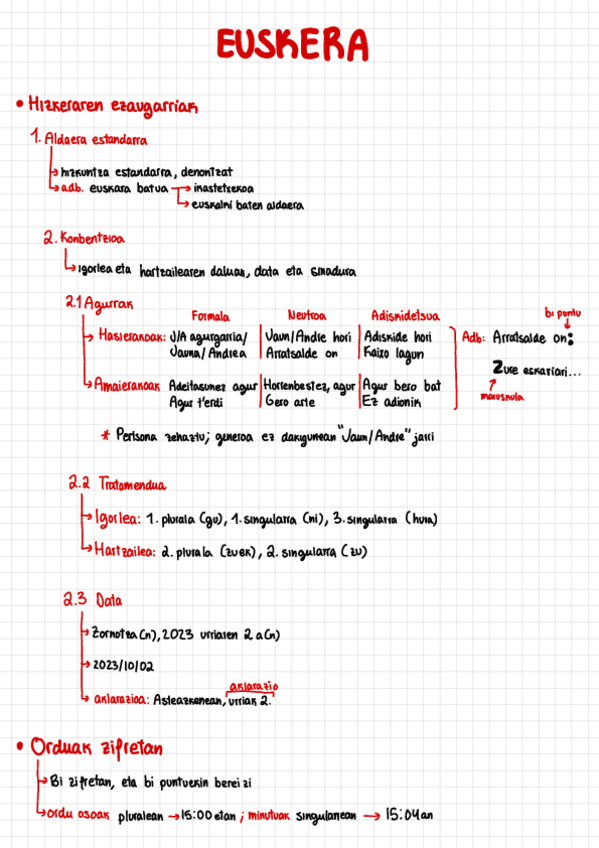 EUSKERA
• Hizkeraren ezaugarriak
1. Aldaera estandarra
hizkuntza estandarra, denontzat
adb. euskara batua → ikastetxekoa
euskalki baten aldaera
2. Konbentzioa
Igorlea eta hartzailearen daluak, data eta sinadura
2.1 Agurrak
Formala Neutroa Adiskidetsua
bi puntu
Hasierakoak: J/A agurgarria/ Jaun/Andre hori Adiskide hori Adb: Arratsalde on:
Jauna/Andrea Arratsalde on Kaixo lagun
Zure eskariari...
Amaierakoak Adeitasunez agur Horrenbestez, agur Agur bero bat
maiuskula
Agur t'erdi Gero arte Ez adiorik
* Pertsona zehaztu; generoa ez dakigunean "Jaun/Andre" jarri
2.2 Tratamendua
Igorlea: 1. plurala (gu), 1. singularra (ni), 3. singularra (hura)
Hartzailea: 2. plurala (zuek), 2. singularra (zu)
2.3 Data
Zornotza(n), 2023 urriaren 2 a(n)
2023/10/02
aklarazio
aklarazioa: Asteazkenean, urriak 2.
• Orduak zifretan
Bi zifretan, eta bi puntuekin bereizi
ordu osoak pluralean → 15:00etan ; minutuak singularrean → 15:04an